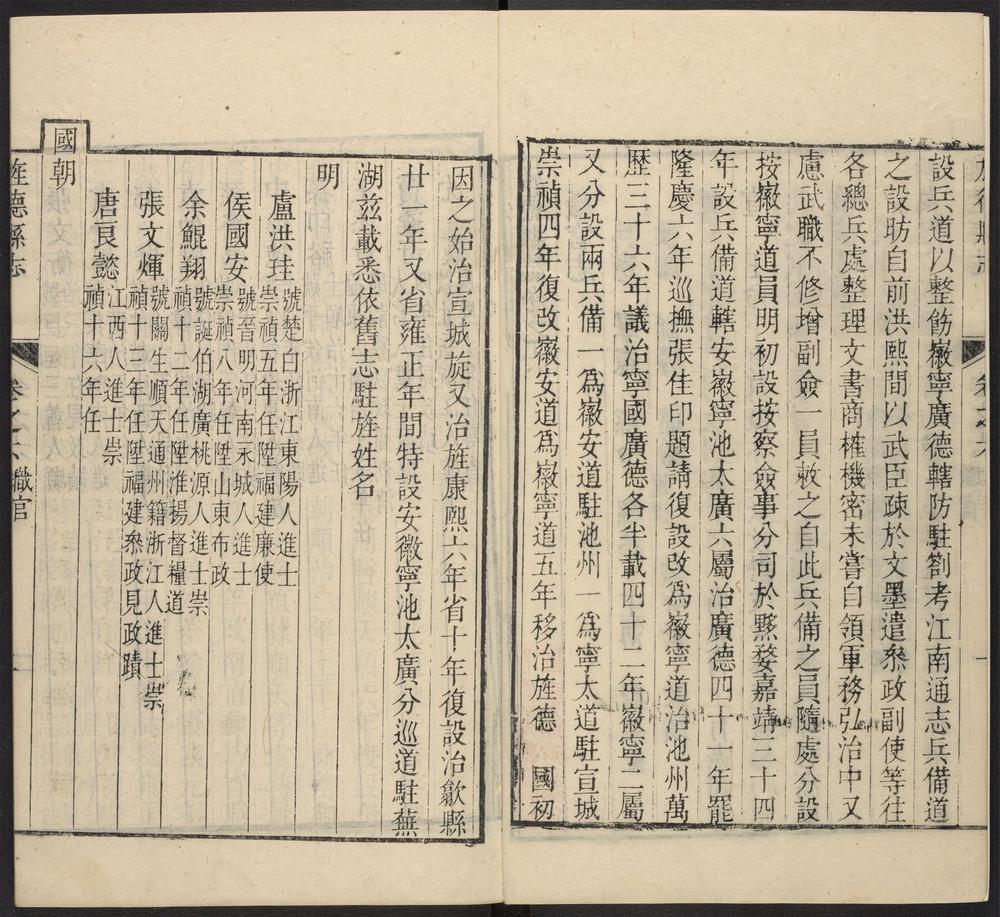 旌德縣志
卷之六
一
設兵道以整飭徽寧廣德轄防駐劄考江南通志兵備道
之設昉自前洪熙間以武臣疎於文墨遣叅政副使等往
各總兵處整理文書商榷機密未嘗自領軍務弘治中又
慮武職不修增副僉一員敕之自此兵備之員隨處分設
按徽寧道員明初設按察僉事分司於黟婺嘉靖三十四
年設兵備道轄安徽寧池太廣六屬治廣德四十一年罷
隆慶六年巡撫張佳印題請復設改爲徽寧道治池州萬
歷三十六年議治寧國廣德各半載四十二年徽寧二屬
又分設兩兵備一爲徽安道駐池州一爲寧太道駐宣城
崇禎四年復改徽安道爲徽寧道五年移治旌德 國初
因之始治宣城旋又治旌康熙六年省十年復設治歙縣
廿一年又省雍正年間特設安徽寧池太廣分巡道駐蕪
湖兹載悉依舊志駐旌姓名
明
盧洪珪 號楚白浙江東陽人進士
崇禎五年任陞福建廉使
侯國安 號晉明河南永城人進士
崇禎八年任陞山東布政
余鯤翔 號誕伯湖廣桃源人進士崇
禎十二年任陞淮揚督糧道
張文煇 號關生順天通州籍浙江人進士崇
禎十三年任陞福建叅政見政蹟
唐良懿 江西人進士崇
禎十六年任
國朝
旌德縣志
卷之六 職官